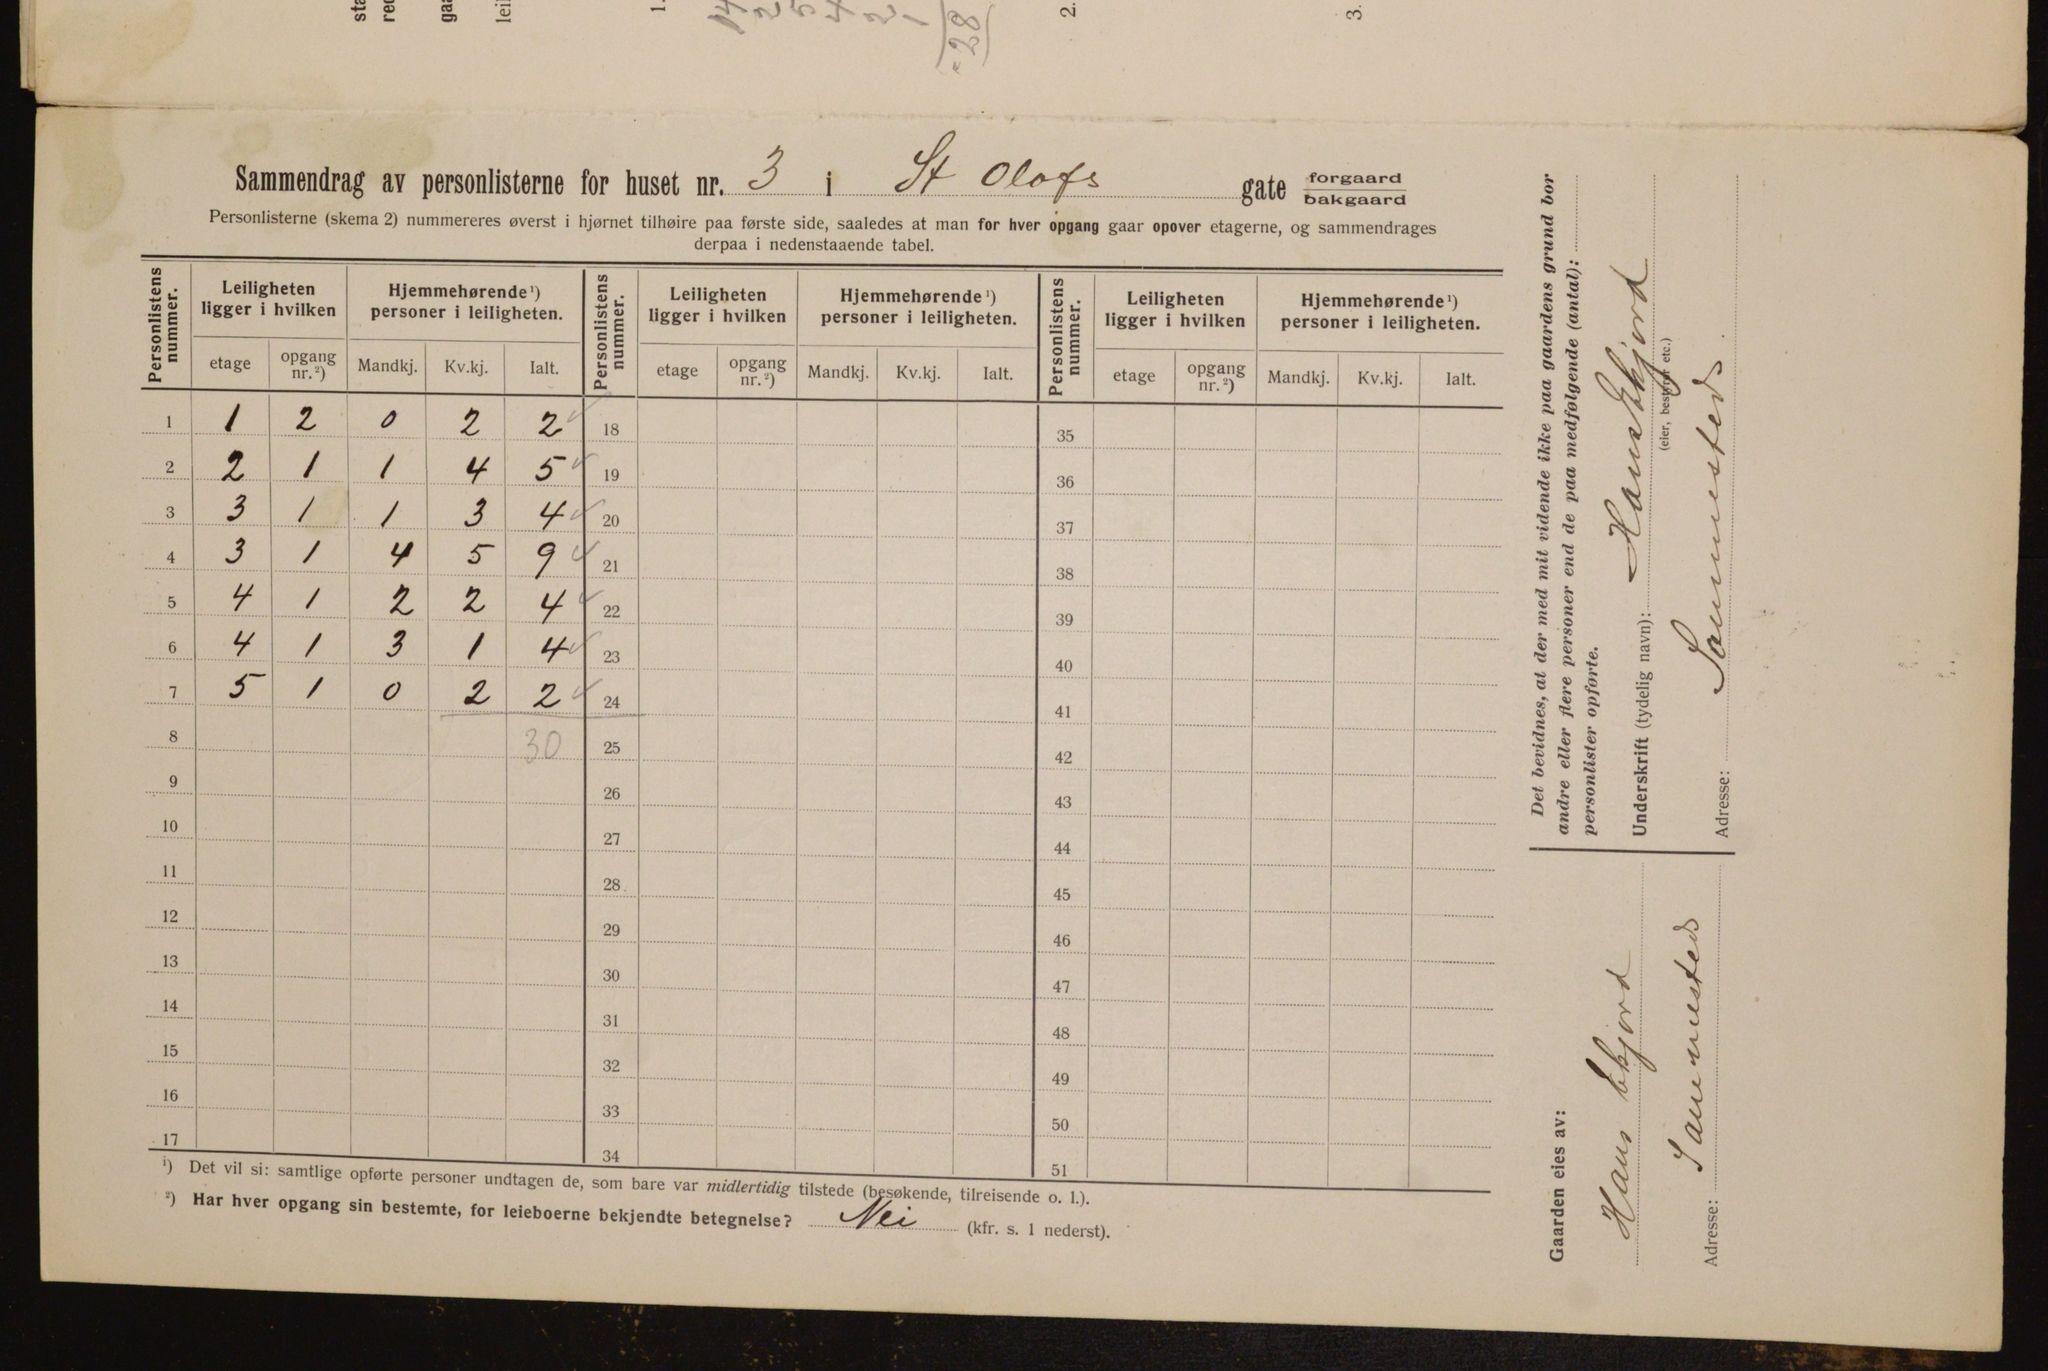 sta
red
gaa
leil
1.
2.
3.
28
Sammendrag av personlisterne for huset nr. 3 i St Olafs gate forgaard
bakgaard
Personlisterne (skema 2) nummereres øverst i hjørnet tilhøire paa første side, saaledes at man for hver opgang gaar opover etagerne, og sammendrages
derpaa i nedenstaaende tabel.
Personlistens nummer. Leiligheten ligger i hvilken Hjemmehørende¹) personer i leiligheten. Personlistens nummer. Leiligheten ligger i hvilken Hjemmehørende¹) personer i leiligheten. Personlistens nummer. Leiligheten ligger i hvilken Hjemmehørende¹) personer i leiligheten.
etage opgang nr.²) Mandkj. Kv.kj. Ialt. etage opgang nr.²) Mandkj. Kv.kj. Ialt. etage opgang nr.²) Mandkj. Kv.kj. Ialt.
1 1 2 0 2 2 18 35
2 2 1 1 4 5 19 36
3 3 1 1 3 4 20 37
4 3 1 4 5 9 21 38
5 4 1 2 2 4 22 39
6 4 1 3 1 4 23 40
7 5 1 0 2 2 24 41
8 30 25 42
9 26 43
10 27 44
11 28 45
12 29 46
13 30 47
14 31 48
15 32 49
16 33 50
17 34 51
¹) Det vil si: samtlige opførte personer undtagen de, som bare var midlertidig tilstede (besøkende, tilreisende o. l.).
²) Har hver opgang sin bestemte, for leieboerne bekjendte betegnelse? Nei (kfr. s. 1 nederst).
Det bevidnes, at der med mit vidende ikke paa gaardens grund bor
andre eller flere personer end de paa medfølgende (antal):
personlister opførte.
Underskrift (tydelig navn): Hans Ekjord
(eier, bestyrer etc.)
Adresse: Sammesteds.
Gaarden eies av:
Hans Ekjord
Adresse: Sammesteds